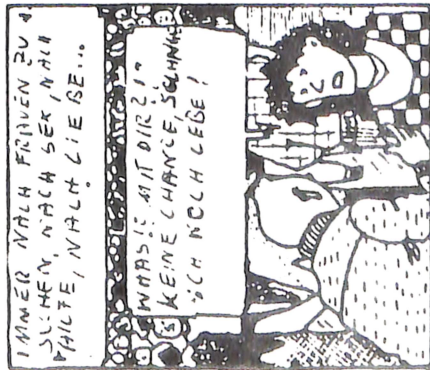 IMMER NACH FRAUEN ZU
SUCHEN, NACH SEX, NACH
HILFE, NACH LIEBE...
WHAS!! MIT DIR?!"
KEINE CHANCE, SOLANGE
ICH NOCH LEBE!